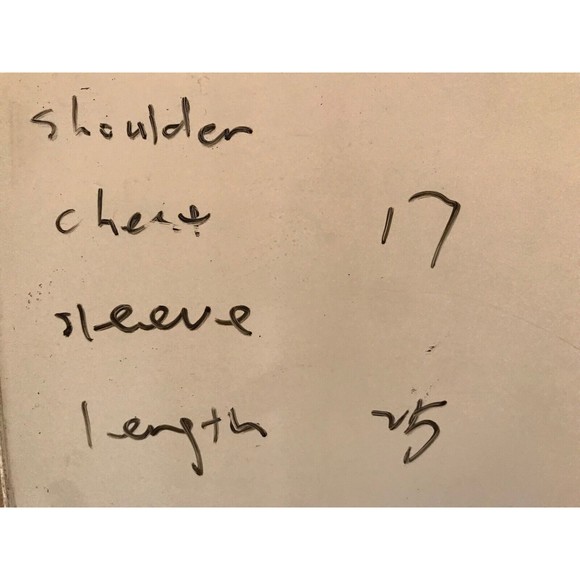 shoulder
chest 17
sleeve
length 25